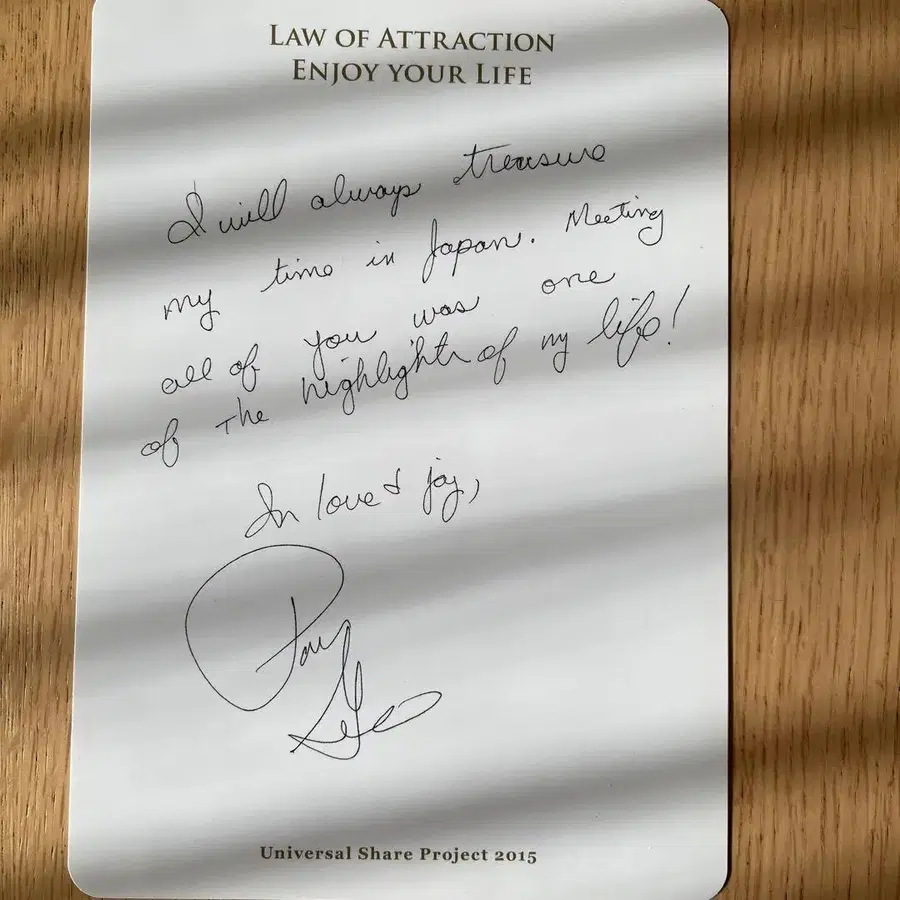 LAW OF ATTRACTION
ENJOY YOUR LIFE
I will always treasure
my time in Japan. Meeting
all of you was one
of the highlights of my life!
In love & joy,
Universal Share Project 2015